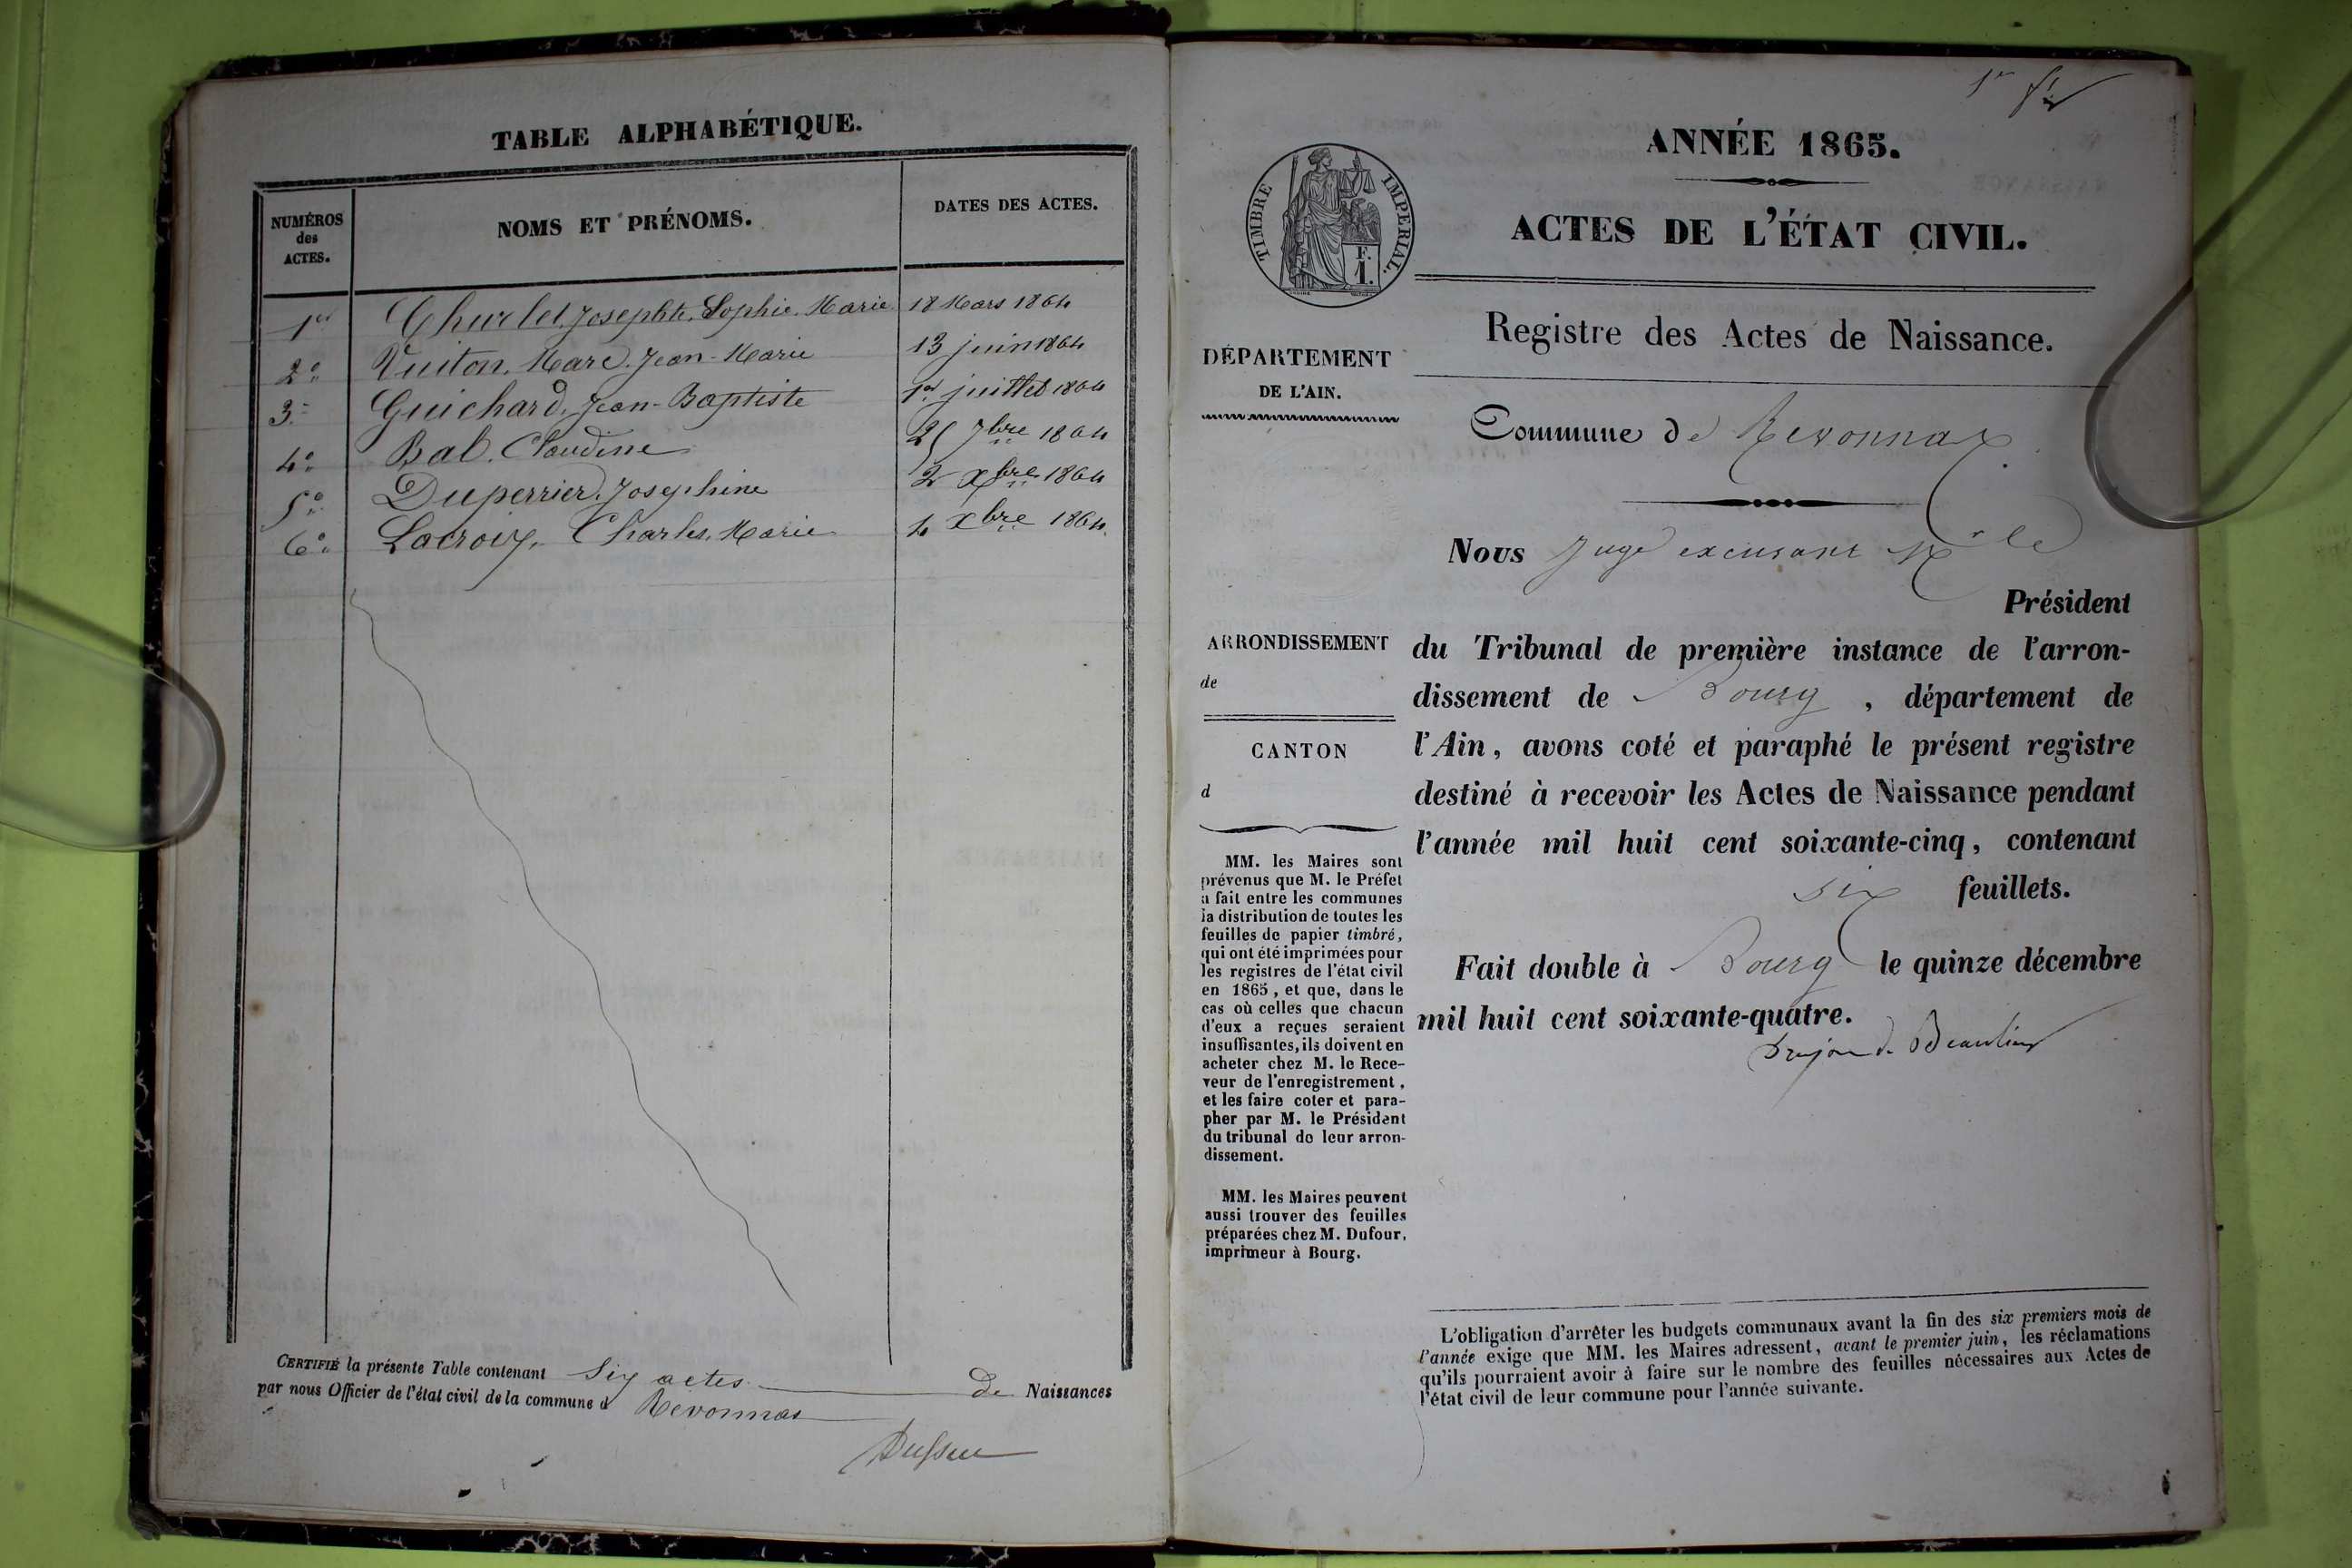 TABLE ALPHABÉTIQUE.
NUMÉROS des ACTES.
NOMS ET PRÉNOMS.
DATES DES ACTES.
1er Churlet, Josephte, Sophie, Marie 18 Mars 1864
2o Vuiton, Marc, Jean-Marie 13 juin 1864
3o Guichard, Jean-Baptiste 1er juillet 1864
4o Bal, Claudine 25 7bre 1864
5o Duperrier, Joséphine 2 Xbre 1864
6o Lacroix, Charles, Marie 4 Xbre 1864
CERTIFIÉ la présente Table contenant Six actes de Naissances
par nous Officier de l'état civil de la commune d Revonnas
1er
ANNÉE 1865.
TIMBRE IMPERIAL.
F. 1.
ACTES DE L'ÉTAT CIVIL.
Registre des Actes de Naissance.
DÉPARTEMENT
DE L'AIN.
Commune de Revonnas
Nous Juge excusant Mr le
Président
ARRONDISSEMENT
de
CANTON
d
du Tribunal de première instance de l'arron-
dissement de Bourg , département de
l'Ain, avons coté et paraphé le présent registre
destiné à recevoir les Actes de Naissance pendant
l'année mil huit cent soixante-cinq, contenant
six feuillets.
Fait double à Bourg le quinze décembre
mil huit cent soixante-quatre.
de Beaulieu
MM. les Maires sont
prévenus que M. le Préfet
a fait entre les communes
la distribution de toutes les
feuilles de papier timbré,
qui ont été imprimées pour
les registres de l'état civil
en 1865, et que, dans le
cas où celles que chacun
d'eux a reçues seraient
insuffisantes, ils doivent en
acheter chez M. le Rece-
veur de l'enregistrement,
et les faire coter et para-
pher par M. le Président
du tribunal de leur arron-
dissement.
MM. les Maires peuvent
aussi trouver des feuilles
préparées chez M. Dufour,
imprimeur à Bourg.
L'obligation d'arrêter les budgets communaux avant la fin des six premiers mois de
l'année exige que MM. les Maires adressent, avant le premier juin, les réclamations
qu'ils pourraient avoir à faire sur le nombre des feuilles nécessaires aux Actes de
l'état civil de leur commune pour l'année suivante.